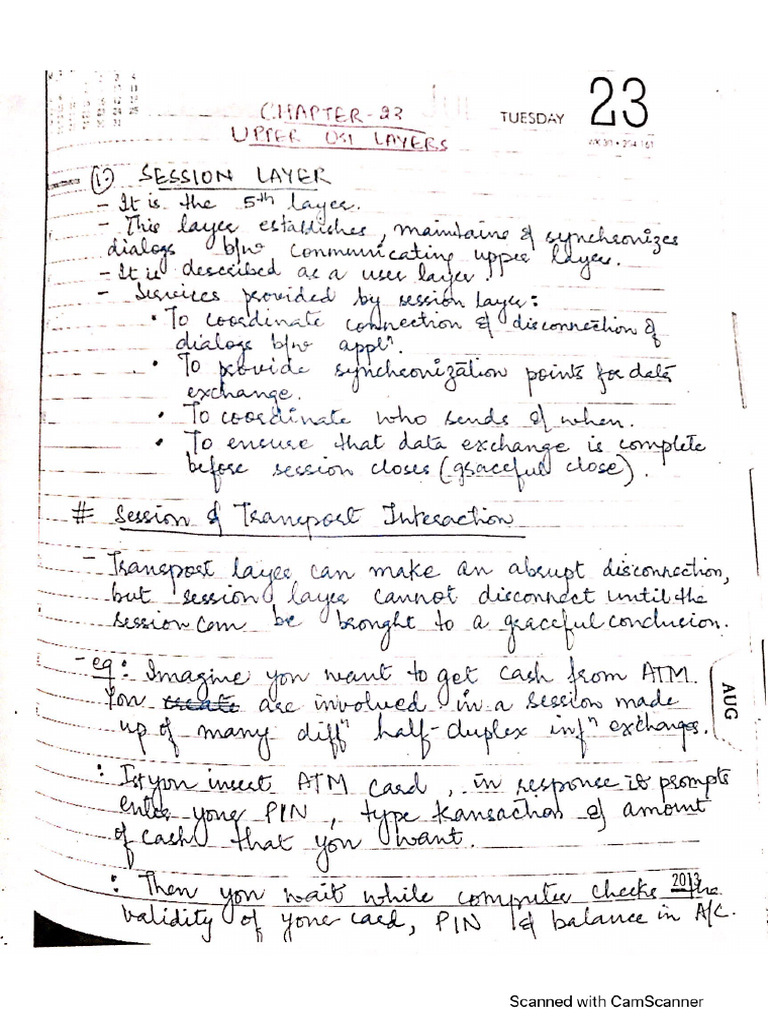 CHAPTER-23
TUESDAY 23
UPPER OSI LAYERS
① SESSION LAYER
- It is the 5th layer.
- This layer establishes, maintains & synchronizes
dialogs b/w communicating upper layers.
- It is described as a user layer
- Services provided by session layer:
• To coordinate connection & disconnection of
dialogs b/w applⁿ.
• To provide synchronization points for data
exchange.
• To coordinate who sends & when.
• To ensure that data exchange is complete
before session closes (graceful close).
# Session & Transport Interaction
- Transport layer can make an abrupt disconnection,
but session layer cannot disconnect until the
session can be brought to a graceful conclusion.
- eg: Imagine you want to get cash from ATM.
You are involved in a session made
up of many diffⁿ half-duplex infⁿ exchanges.
AUG
: Ist you insert ATM card, in response it prompts
enter your PIN, type transaction & amount
of cash that you want.
: Then you wait while computer checks the
2013
validity of your card, PIN & balance in A/C.
Scanned with CamScanner